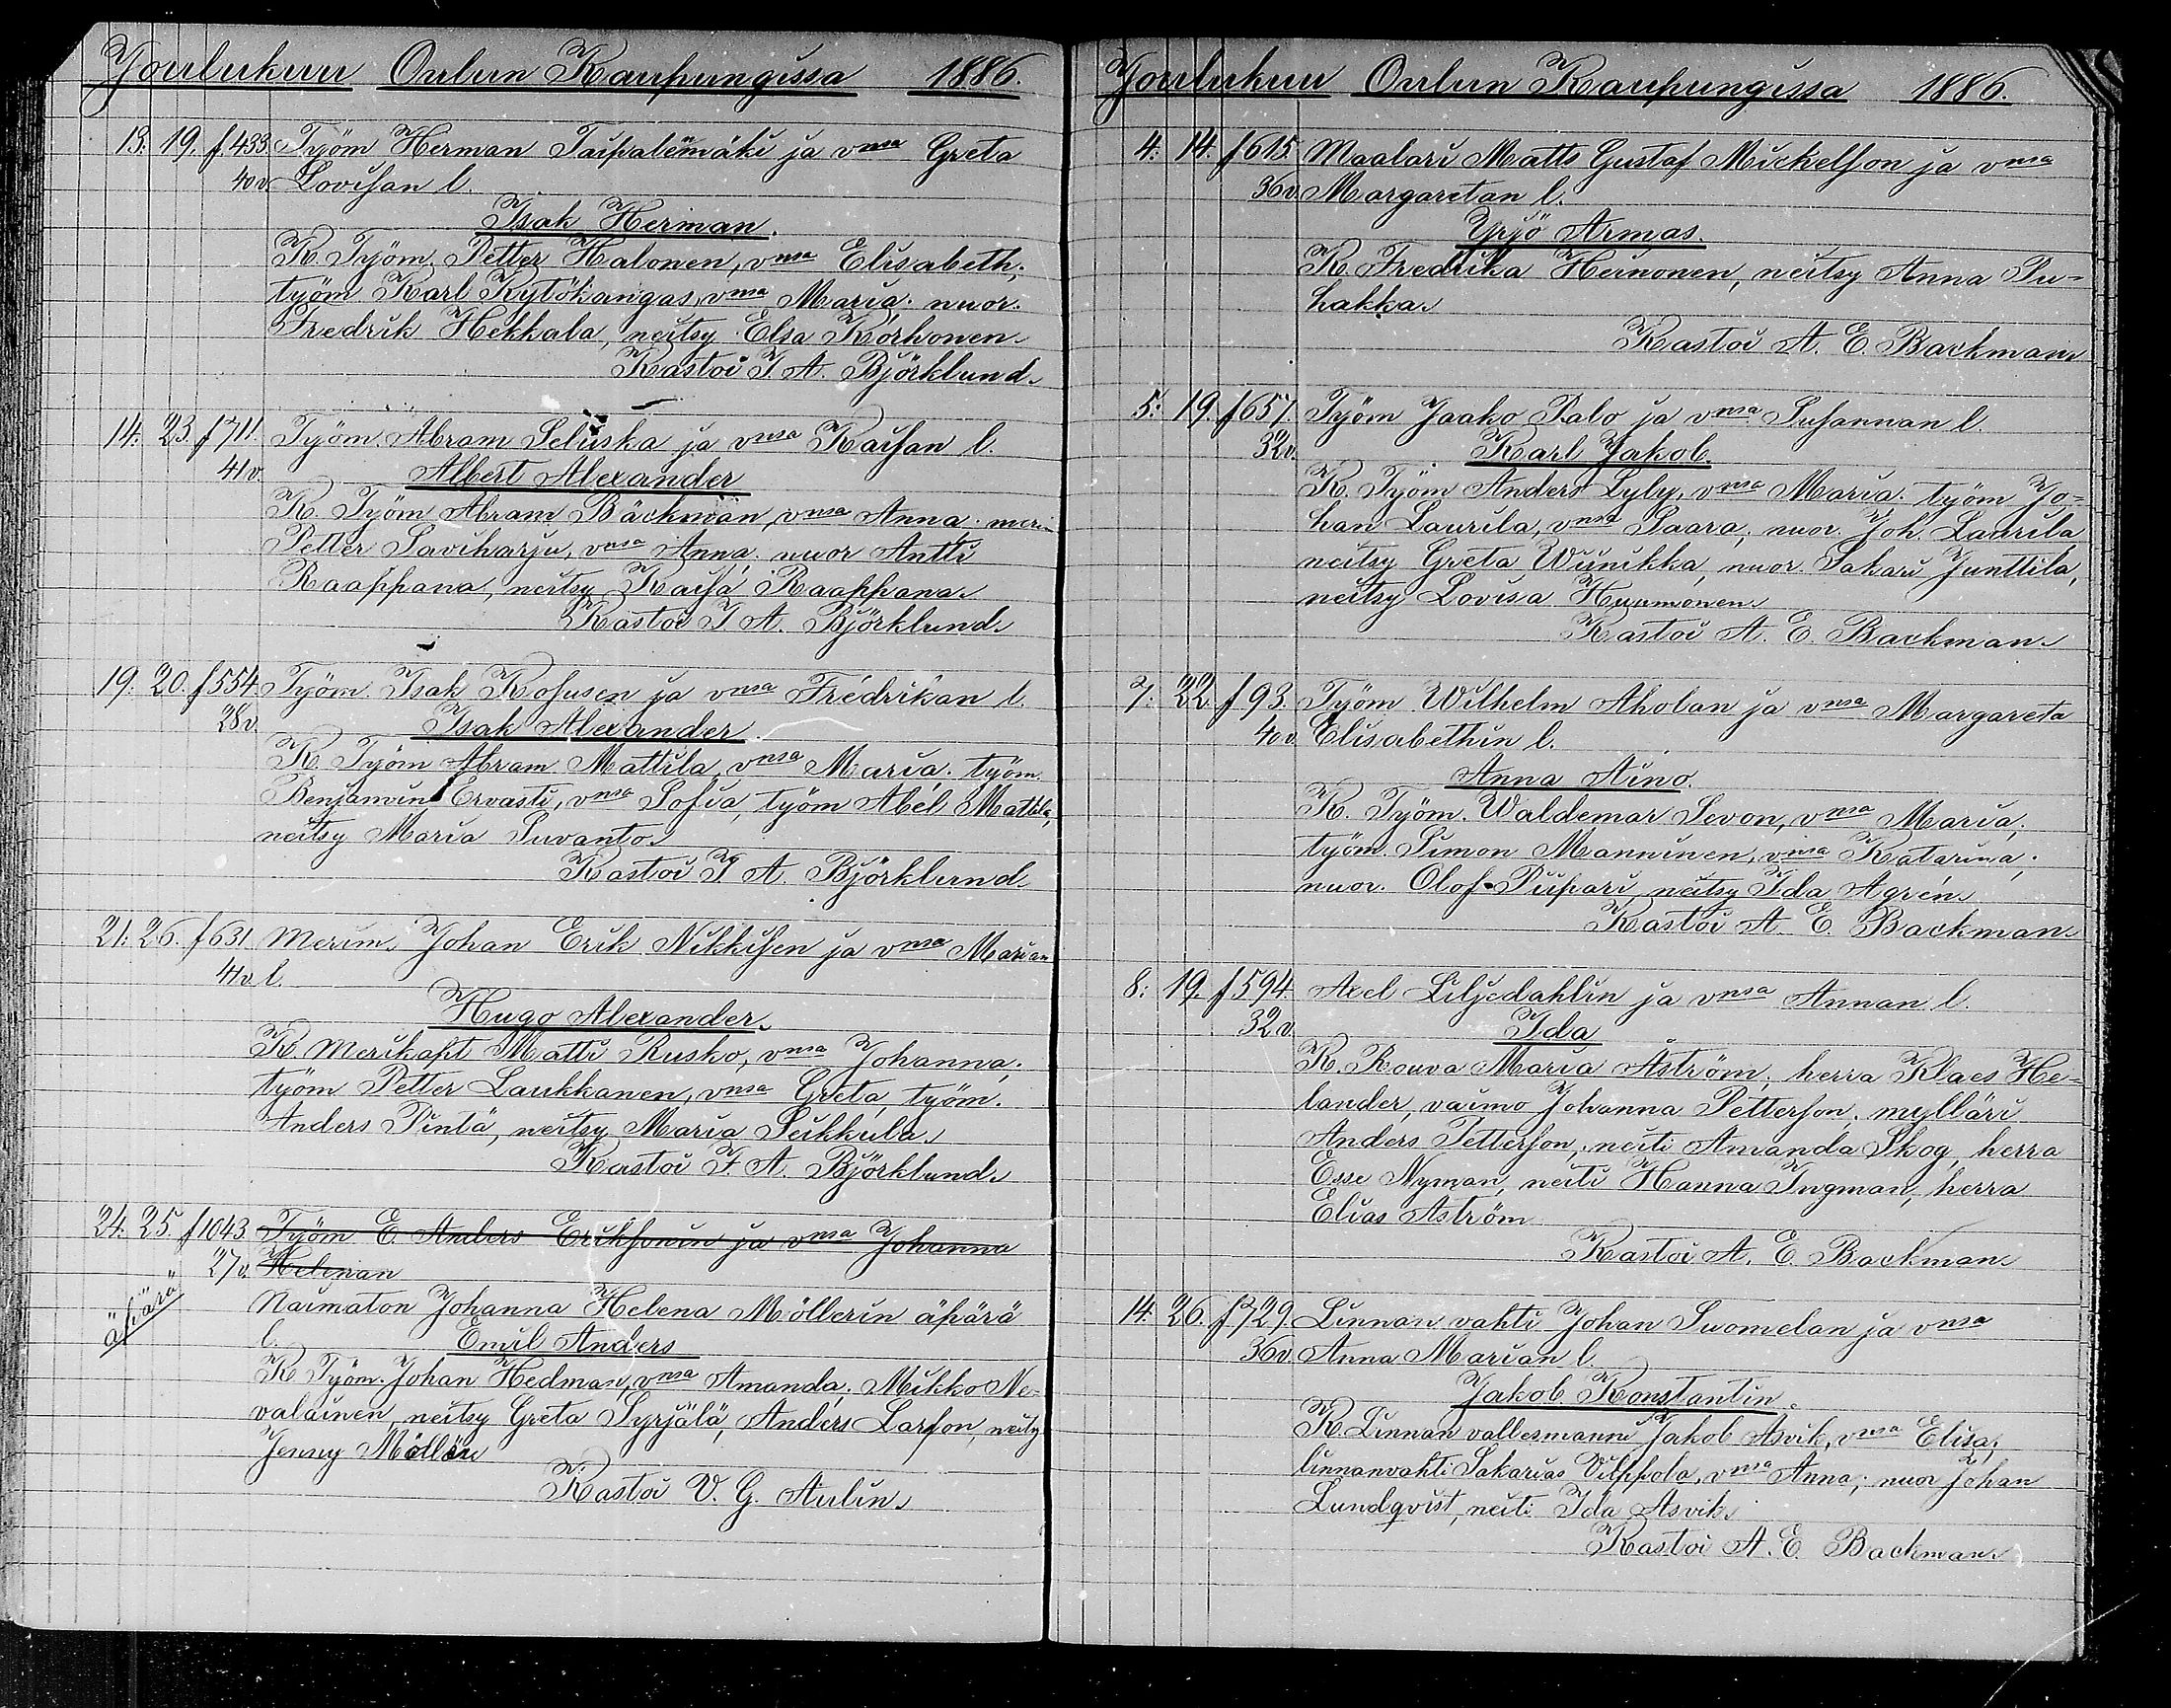 Joulukuu Oulun Kaupungissa 1886.
13. 19. f 433. Työm Herman Taipalenmäki ja vnsa Greta
40 v Lovisan l.
Isak Herman.
K. Työm. Petter Halonen, vnsa Elisabeth;
työm Karl Kytökangas, vnsa Maria; nuor.
Fredrik Hekkala, neitsy Elsa Korhonen.
Kastoi F. A. Björklund.
14. 23. f 711. Työm. Abram Seluska ja vnsa Kaisan l.
41 v. Albert Alexander
K. Työm Abram Bäckman, vnsa Anna; merim
Petter Saviharju, vnsa Anna; nuor Antti
Raappana, neitsy Kaisa Raappana.
Kastoi F A. Björklund.
19. 20. f 554. Työm. Isak Kosusen ja vnsa Fredrikan l.
28 v. Isak Alexander
K. Työm Abram Mattila, vnsa Maria; työm.
Benjamin Ervasti, vnsa Sofia, työm Abel Mattila,
neitsy Maria Suvanto.
Kastoi F. A. Björklund.
21. 26. f 631 Merim. Johan Erik Nikkisen ja vnsa Marian
41 v. l.
Hugo Alexander.
K. Merikapt Matti Rusko, vnsa Johanna;
työm Petter Laukkanen, vnsa Greta, työm.
Anders Pintä, neitsy Maria Leikkula.
Kastoi F. A. Björklund.
24. 25. f 1043. Työm E. Anders Eriksonin ja vnsa Johanna
27 v. Helenan
äpärä Naimaton Johanna Helena Möllerin äpärä
l. Emil Anders
K Työm. Johan Hedman, vnsa Amanda; Mikko Ne-
valainen, neitsy Greta Syrjälä, Anders Larson, neity
Jenny Möller
Kastoi V. G. Aulin.
Joulukuu Oulun Kaupungissa 1886.
4. 14. f 615. Maalari Matts Gustaf Mickelson ja vnsa
36 v. Margaretan l.
Yrjö Armas.
K. Fredrika Heinonen, neitsy Anna Pu-
hakka.
Kastoi A. E. Backman
5. 19. f 657. Työm Jaako Palo ja vnsa Susannan l.
32 v. Karl Jakob.
K. Työm Anders Lyly, vnsa Maria; työm Jo-
han Laurila, vnsa Saara; nuor. Joh. Laurila
neitsy Greta Wiinikka, nuor. Sakari Junttila,
neitsy Lovisa Huumonen.
Kastoi A. E. Backman.
7. 22. f 93. Työm Wilhelm Aholan ja vnsa Margareta
40 v. Elisabethin l.
Anna Aino.
K. Työm. Waldemar Sevon, vnsa Maria;
työm. Simon Manninen, vnsa Katarina;
nuor. Olof Piipari, neitsy Ida Agrén.
Kastoi A. E. Backman.
8. 19. f 594. Axel Liljedahlin ja vnsa Annan l.
32 v. Ida
K. Rouva Maria Åström; herra Klaes He-
lander, vaimo Johanna Petterson; mylläri
Anders Petterson, neiti Amanda Skog, herra
Esse Nyman, neiti Hanna Ingman, herra
Elias Aström
Kastoi A. E. Backman.
14. 26. f 729. Linnan vahti Johan Suomelan ja vnsa
36 v. Anna Marian l.
Jakob Konstantin.
K. Linnan vallesmanni Jakob Asvik, vnsa Elisa;
linnanvahti Sakarias Vilppola, vnsa Anna; nuor Johan
Lundqvist, neiti Ida Asvik.
Kastoi A. E. Backman.